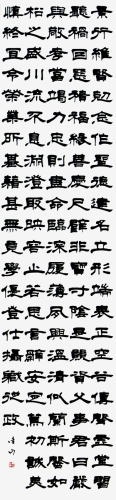 景行維賢克念作聖德建名立形端表正空谷傳聲虛堂習
聽禍因惡積福緣善慶尺璧非寶寸陰是競資父事君曰嚴
與敬孝當竭力忠則盡命臨深履薄夙興溫凊似蘭斯馨如
松之盛川流不息淵澄取映容止若思言辭安定篤初誠美
慎終宜令榮業所基籍甚無竟學優登仕攝職從政